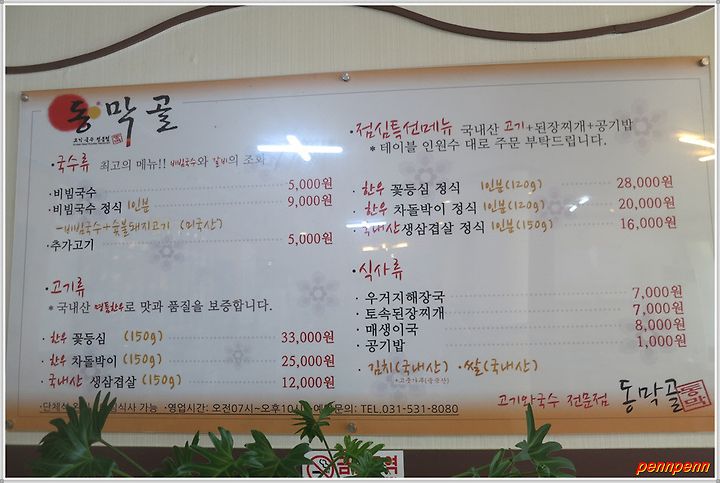 동막골
고기 국수 전문점
·국수류 최고의 메뉴!! 비빔국수와 갈비의 조화
·비빔국수 5,000원
·비빔국수 정식 1인분 9,000원
-비빔국수+숯불돼지고기 (미국산)
·추가고기 5,000원
·고기류
*국내산 명품한우로 맛과 품질을 보증합니다.
·한우 꽃등심 (150g) 33,000원
·한우 차돌박이 (150g) 25,000원
·국내산 생삼겹살 (150g) 12,000원
·단체석 식사 가능 ·영업시간: 오전07시~오후10시 문의: TEL.031-531-8080
·점심특선메뉴 국내산 고기+된장찌개+공기밥
*테이블 인원수 대로 주문 부탁드립니다.
·한우 꽃등심 정식 1인분(120g) 28,000원
·한우 차돌박이 정식 1인분(120g) 20,000원
·국내산생삼겹살 정식 1인분(150g) 16,000원
·식사류
·우거지해장국 7,000원
·토속된장찌개 7,000원
·매생이국 8,000원
·공기밥 1,000원
·김치(국내산) ·쌀(국내산)
·고춧가루(중국산)
고기와국수 전문점 동막골
동막
금 역
pennpenn